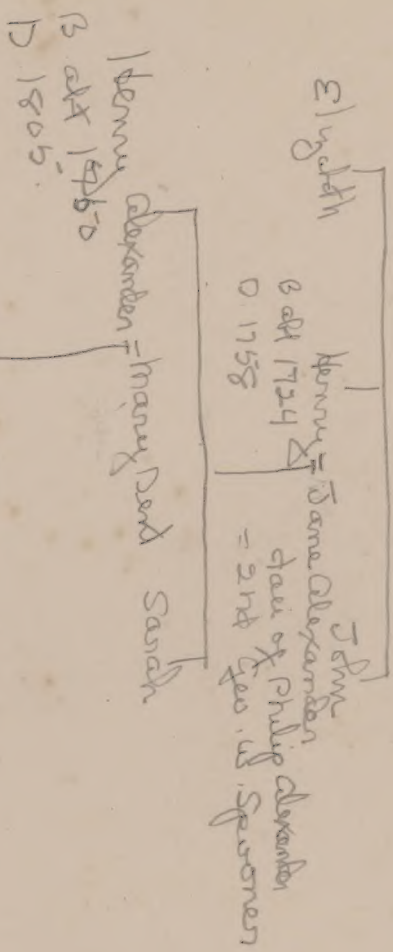 Elizabeth Henry = Jane Alexander John
B abt 1724
D 1758
dau of Philip Alexander
= 2nd Geo. W. Spooner
Henry Alexander = Mary Dent Sarah
B abt 1750
D 1805.